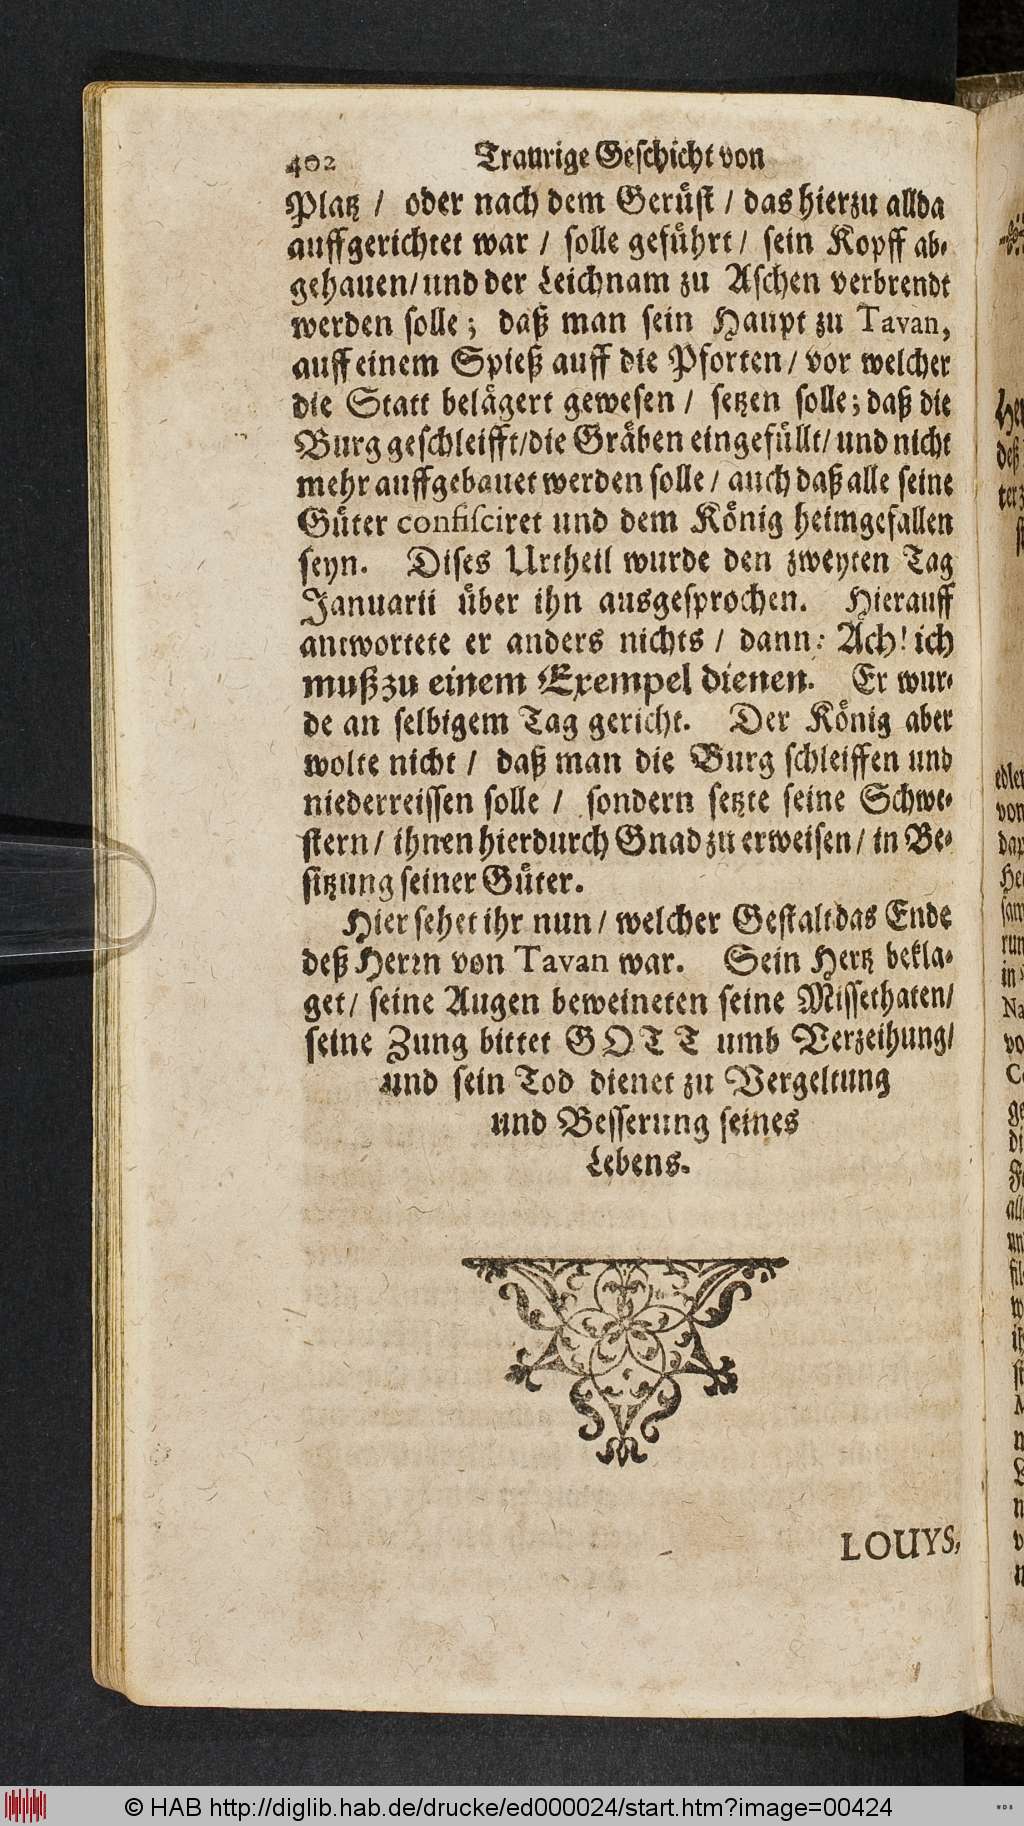 402 Traurige Geschicht von
Platz / oder nach dem Gerüst / das hierzu allda
auffgerichtet war / solle geführt / sein Kopff ab-
gehauen / und der Leichnam zu Aschen verbrendt
werden solle; daß man sein Haupt zu Tavan,
auff einem Spieß auff die Pforten / vor welcher
die Statt belägert gewesen / setzen solle; daß die
Burg geschleifft / die Gräben eingefüllt / und nicht
mehr auffgebauet werden solle / auch daß alle seine
Güter confisciret und dem König heimgefallen
seyn. Dises Urtheil wurde den zweyten Tag
Januarii über ihn ausgesprochen. Hierauff
antwortete er anders nichts / dann: Ach! ich
muß zu einem Exempel dienen. Er wur-
de an selbigem Tag gericht. Der König aber
wolte nicht / daß man die Burg schleiffen und
niederreissen solle / sondern setzte seine Schwe-
stern / ihnen hierdurch Gnad zu erweisen / in Be-
sitzung seiner Güter.
Hier sehet ihr nun / welcher Gestalt das Ende
deß Herrn von Tavan war. Sein Hertz bekla-
get / seine Augen beweineten seine Missethaten /
seine Zung bittet GOTT umb Verzeihung /
und sein Tod dienet zu Vergeltung
und Besserung seines
Lebens.
LOUYS,
© HAB http://diglib.hab.de/drucke/ed000024/start.htm?image=00424